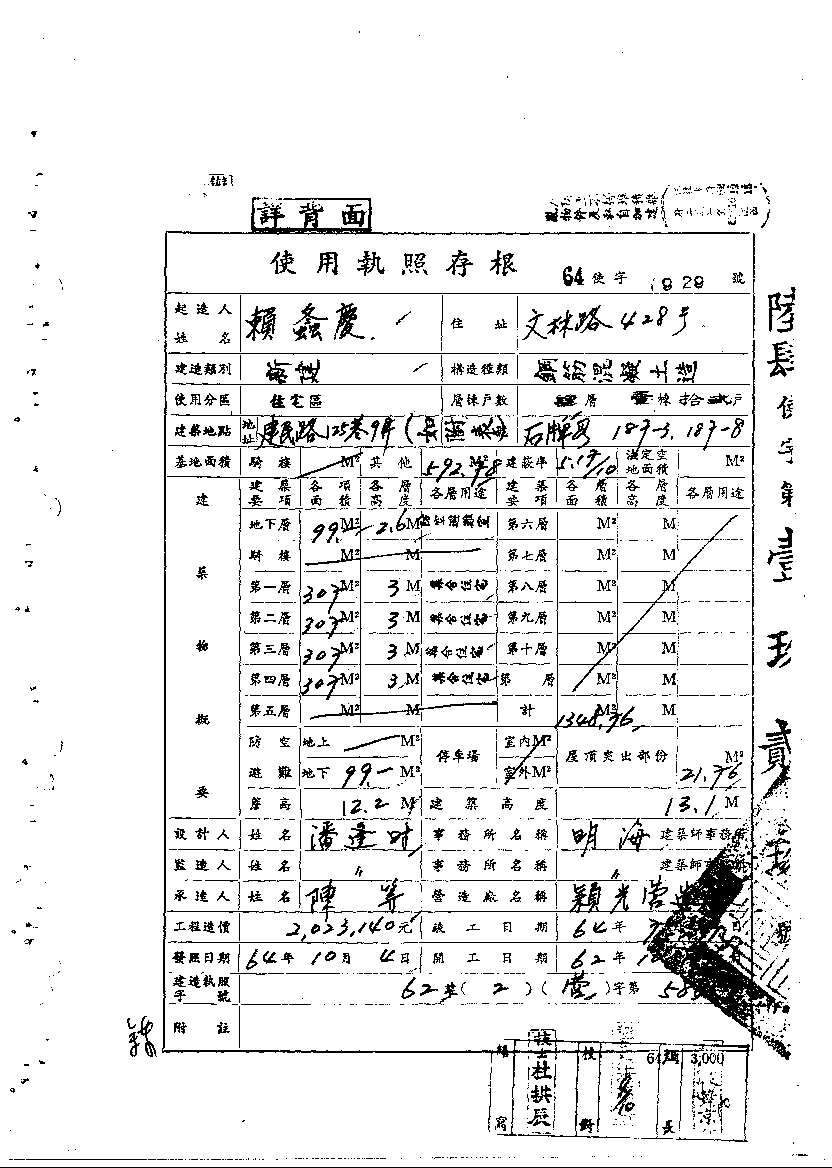 詳背面
使用執照存根 64使字1929號
起造人姓名 賴螽慶 住址 文林路428号
建造類別 新建 構造種類 鋼筋混凝土造
使用分區 住宅區 層棟戶數 層 棟 拾貳戶
建築地點 地址 建民路125巷9弄 石牌段 187-3, 187-8
基地面積 騎樓 M² 其他 592.98 M² 建蔽率 5.17/10 法定空地面積 M²
建築物概要
建築要項 各項面積 各層高度 各層用途 建築要項 各層面積 各層高度 各層用途
地下層 99.- M² 2.6 M 第六層 M² M
騎樓 M² M 第七層 M² M
第一層 307 M² 3 M 集合住宅 第八層 M² M
第二層 307 M² 3 M 集合住宅 第九層 M² M
第三層 307 M² 3 M 集合住宅 第十層 M² M
第四層 307 M² 3 M 集合住宅 第 層 M² M
第五層 M² M 計 1348.76 M² M
防空避難 地上 M² 停車場 室內M² 屋頂突出部份 21.76 M²
地下 99.- M² 室外M²
簷高 12.2 M 建築高度 13.1 M
設計人 姓名 潘逢時 事務所名稱 明海 建築師事務所
監造人 姓名 〃 事務所名稱 〃 建築師
承造人 姓名 陳笄 營造廠名稱 穎光營造
工程造價 2,023,140元 竣工日期 64年 日
發照日期 64年10月4日 開工日期 62年
建造執照字號 62建(2)(营)字第58
附註
陸肆使字第壹玖貳玖號
繕寫 技士杜拱辰 校對 64 3,000 長